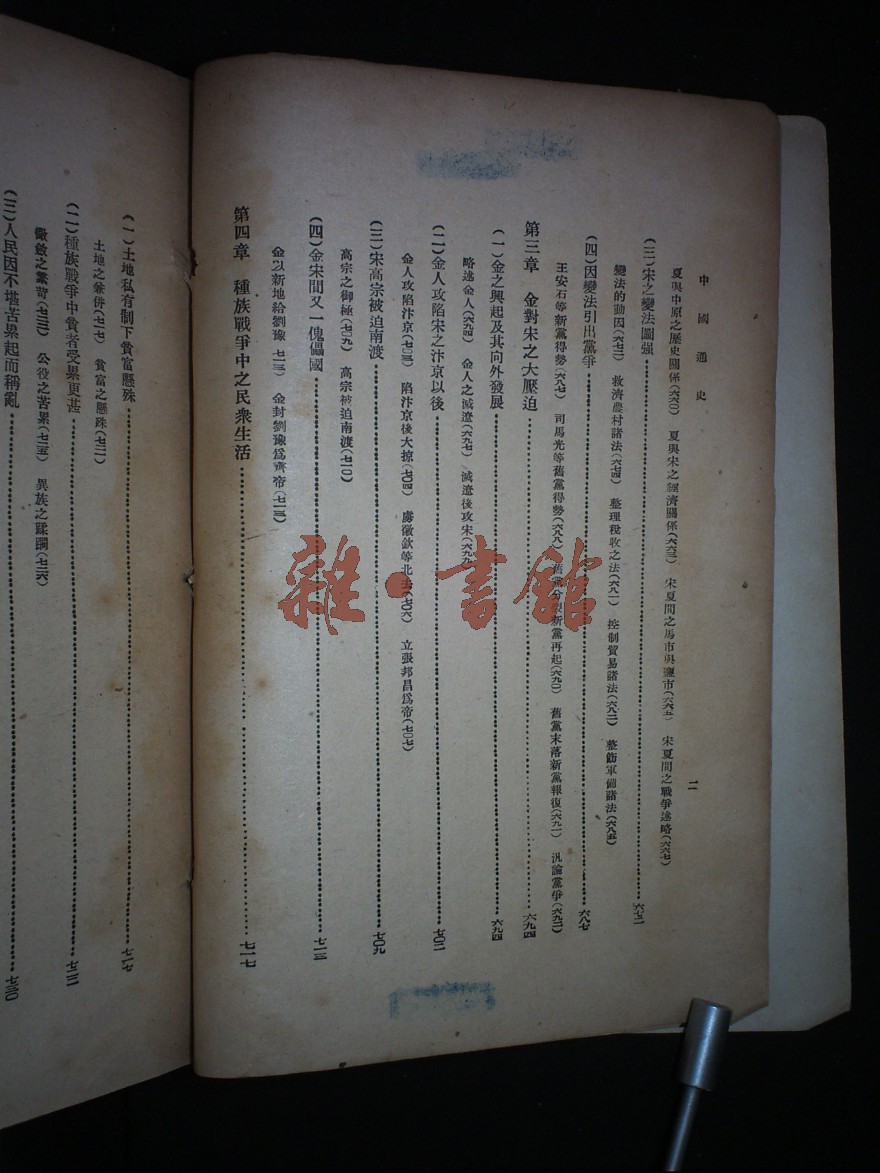 中國通史
二
夏與中原之歷史關係(六六〇) 夏與宋之經濟關係(六六三) 宋夏間之馬市與鹽市(六六五) 宋夏間之戰爭述略(六六七)
(三)宋之變法圖强…………六七二
變法的動因(六七二) 救濟農村諸法(六七四) 整理稅收之法(六八一) 控制貿易諸法(六八二) 整飭軍備諸法(六八五)
(四)因變法引出黨爭…………六八七
王安石等新黨得勢(六八七) 司馬光等舊黨得勢(六八八) 舊黨分裂新黨再起(六九〇) 舊黨末落新黨報復(六九一) 汎論黨爭(六九二)
第三章 金對宋之大壓迫…………六九四
(一)金之興起及其向外發展…………六九四
略述金人(六九四) 金人之滅遼(六九七) 滅遼後攻宋(六九九)
(二)金人攻陷宋之汴京以後…………七〇二
金人攻陷汴京(七〇三) 陷汴京後大掠(七〇四) 虜徽欽等北去(七〇六) 立張邦昌爲帝(七〇七)
(三)宋高宗被迫南渡…………七〇九
高宗之御極(七〇九) 高宗被迫南渡(七一〇)
(四)金宋間又一傀儡國…………七一三
金以新地給劉豫(七一三) 金封劉豫爲齊帝(七一三)
第四章 種族戰爭中之民衆生活…………七一七
(一)土地私有制下貧富懸殊…………七一七
土地之兼併(七一七) 貧富之懸殊(七二一)
(二)種族戰爭中貧者受累更甚…………七二二
徵斂之繁苛(七二二) 公役之苦累(七二五) 異族之蹂躪(七二六)
(三)人民因不堪苦累起而稱亂…………七三〇
雜·書館